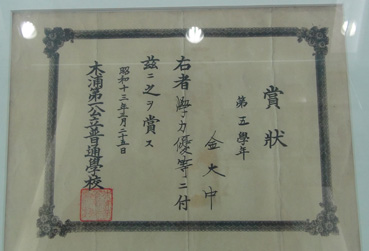 賞狀
第五學年
金大中
右者學力優等ニ付
玆ニ之ヲ賞ス
昭和十三年三月二十五日
木浦第一公立普通學校